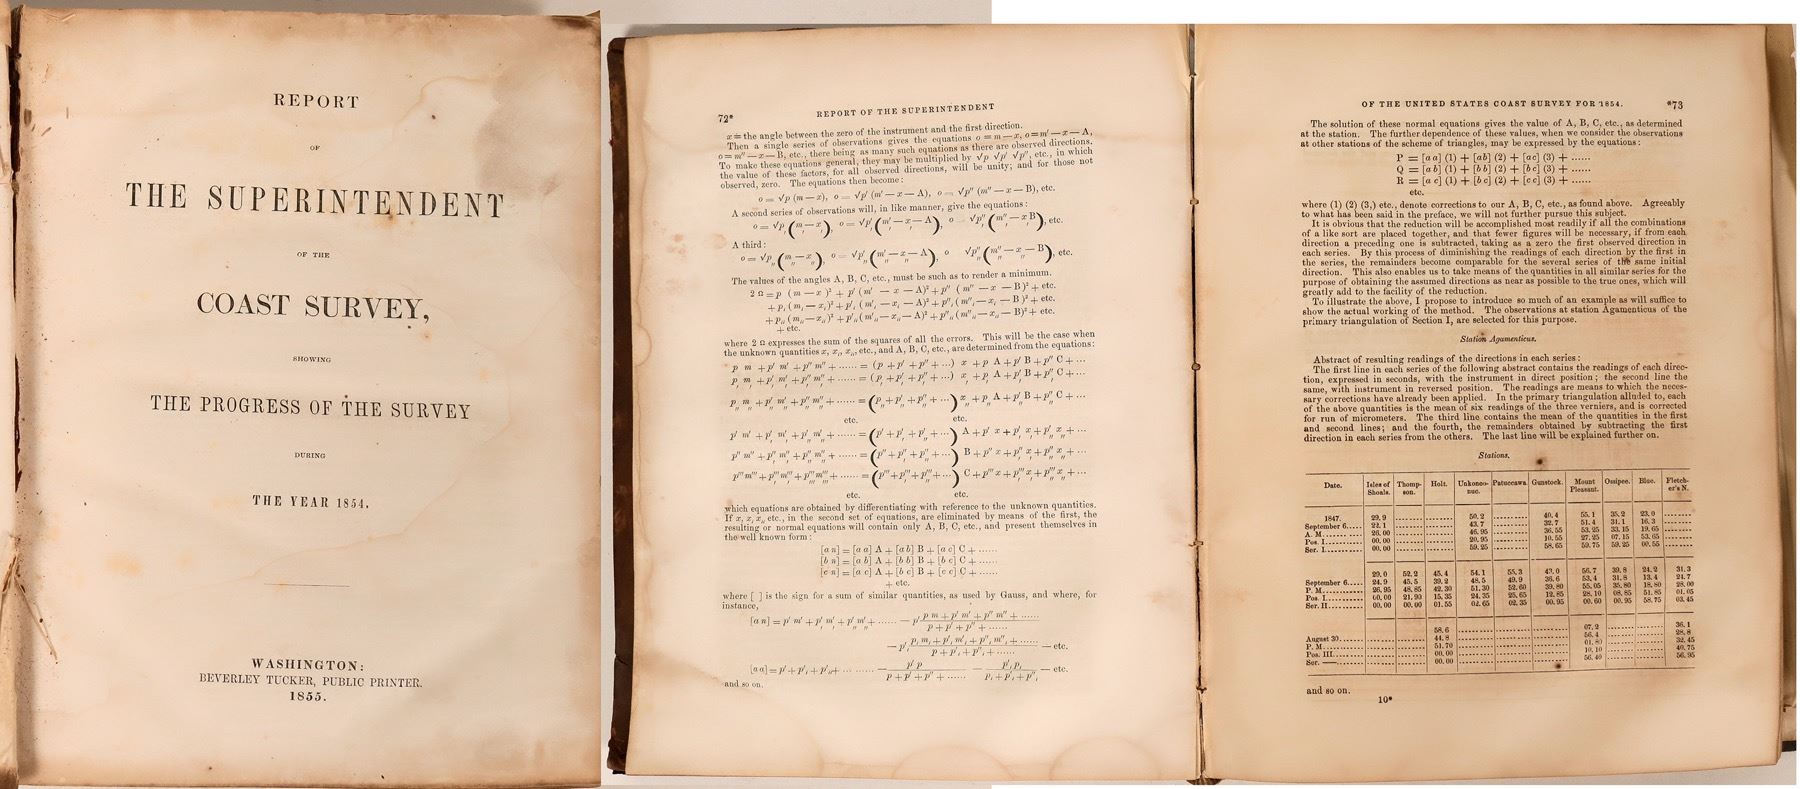 REPORT
OF
THE SUPERINTENDENT
OF THE
COAST SURVEY,
SHOWING
THE PROGRESS OF THE SURVEY
DURING
THE YEAR 1854.
WASHINGTON:
BEVERLEY TUCKER, PUBLIC PRINTER.
1855.
72* REPORT OF THE SUPERINTENDENT
x = the angle between the zero of the instrument and the first direction.
Then a single series of observations gives the equations o = m — x, o = m′ — x — A,
o = m″ — x — B, etc., there being as many such equations as there are observed directions.
To make these equations general, they may be multiplied by √p √p′ √p″, etc., in which
the value of these factors, for all observed directions, will be unity; and for those not
observed, zero. The equations then become:
o = √p (m — x), o = √p′ (m′ — x — A), o = √p″ (m″ — x — B), etc.
A second series of observations will, in like manner, give the equations:
o = √p, (m, — x,), o = √p′, (m′, — x, — A), o √p″, (m″, — x, B), etc.
A third:
o = √p,, (m,, — x,,), o = √p′,, (m′,, — x,, — A), o √p″,, (m″,, — x,, — B), etc.
The values of the angles A, B, C, etc., must be such as to render a minimum.
2 Ω = p (m — x)² + p′ (m′ — x — A)² + p″ (m″ — x — B)² + etc.
+ p, (m, — x,)² + p′, (m′, — x, — A)² + p″, (m″, — x, — B)² + etc.
+ p,, (m,, — x,,)² + p′,, (m′,, — x,, — A)² + p″,, (m″,, — x,, — B)² + etc.
+ etc.
where 2 Ω expresses the sum of the squares of all the errors. This will be the case when
the unknown quantities x, x,, x,,, etc., and A, B, C, etc., are determined from the equations:
p m + p′ m′ + p″ m″ + ...... = (p + p′ + p″ + ...) x + p A + p′ B + p″ C + ...
p, m, + p′, m′, + p″, m″, + ...... = (p, + p′, + p″, + ...) x, + p, A + p′, B + p″, C + ...
p,, m,, + p′,, m′,, + p″,, m″,, + ...... = (p,, + p′,, + p″,, + ...) x,, + p,, A + p′,, B + p″,, C + ...
etc. etc.
p′ m′ + p′, m′, + p′,, m′,, + ...... = (p′ + p′, + p′,, + ...) A + p′ x + p′, x, + p′,, x,, + ...
p″ m″ + p″, m″, + p″,, m″,, + ...... = (p″ + p″, + p″,, + ...) B + p″ x + p″, x, + p″,, x,, + ...
p‴ m‴ + p‴, m‴, + p‴,, m‴,, + ...... = (p‴ + p‴, + p‴,, + ...) C + p‴ x + p‴, x, + p‴,, x,, + ...
etc. etc.
which equations are obtained by differentiating with reference to the unknown quantities.
If x, x, x,, etc., in the second set of equations, are eliminated by means of the first, the
resulting or normal equations will contain only A, B, C, etc., and present themselves in
the well known form:
[a n] = [a a] A + [a b] B + [a c] C + ......
[b n] = [a b] A + [b b] B + [b c] C + ......
[c n] = [a c] A + [b c] B + [c c] C + ......
+ etc.
where [ ] is the sign for a sum of similar quantities, as used by Gauss, and where, for
instance,
[a n] = p′ m′ + p′, m′, + p′,, m′,, + ...... — p′ (p m + p′ m′ + p″ m″ + ......) / (p + p′ + p″ + ......)
— p′, (p, m, + p′, m′, + p″, m″, + ......) / (p, + p′, + p″, + ......) — etc.
[a a] = p′ + p′, + p′,, + ...... — p′ p′ / (p + p′ + p″ + ......) — p′, p′, / (p, + p′, + p″,) — etc.
and so on.
OF THE UNITED STATES COAST SURVEY FOR 1854. *73
The solution of these normal equations gives the value of A, B, C, etc., as determined
at the station. The further dependence of these values, when we consider the observations
at other stations of the scheme of triangles, may be expressed by the equations:
P = [a a] (1) + [ab] (2) + [ac] (3) + ......
Q = [a b] (1) + [b b] (2) + [b c] (3) + ......
R = [a c] (1) + [b c] (2) + [c c] (3) + ......
etc.
where (1) (2) (3,) etc., denote corrections to our A, B, C, etc., as found above. Agreeably
to what has been said in the preface, we will not further pursue this subject.
It is obvious that the reduction will be accomplished most readily if all the combinations
of a like sort are placed together, and that fewer figures will be necessary, if from each
direction a preceding one is subtracted, taking as a zero the first observed direction in
each series. By this process of diminishing the readings of each direction by the first in
the series, the remainders become comparable for the several series of the same initial
direction. This also enables us to take means of the quantities in all similar series for the
purpose of obtaining the assumed directions as near as possible to the true ones, which will
greatly add to the facility of the reduction.
To illustrate the above, I propose to introduce so much of an example as will suffice to
show the actual working of the method. The observations at station Agamenticus of the
primary triangulation of Section I, are selected for this purpose.
Station Agamenticus.
Abstract of resulting readings of the directions in each series:
The first line in each series of the following abstract contains the readings of each direc-
tion, expressed in seconds, with the instrument in direct position; the second line the
same, with instrument in reversed position. The readings are means to which the neces-
sary corrections have already been applied. In the primary triangulation alluded to, each
of the above quantities is the mean of six readings of the three verniers, and is corrected
for run of micrometers. The third line contains the mean of the quantities in the first
and second lines; and the fourth, the remainders obtained by subtracting the first
direction in each series from the others. The last line will be explained further on.
Stations.
Date. Isles of Shoals. Thomp- son. Holt. Unkonoo- nuc. Patuccawa. Gunstock. Mount Pleasant. Ossipee. Blue. Fletch- er's N.
1847. 29.9 50.2 40.4 55.1 35.2 23.0
September 6..... 22.1 43.7 32.7 51.4 31.1 16.3
A. M. 26.00 46.95 36.55 53.25 33.15 19.65
Pos. I. 00.00 20.95 10.55 27.25 07.15 53.65
Ser. I. 00.00 59.25 58.65 59.75 59.25 00.55
29.0 52.2 45.4 54.1 55.3 43.0 56.7 39.8 24.2 31.3
September 6..... 24.9 45.5 39.2 48.5 49.9 36.6 53.4 31.8 13.4 24.7
P. M. 26.95 48.85 42.30 51.30 52.60 39.80 55.05 35.80 18.80 28.00
Pos. I. 00.00 21.90 15.35 24.35 25.65 12.85 28.10 08.85 51.85 01.05
Ser. II. 00.00 00.00 01.55 02.65 02.35 00.95 00.60 00.95 58.75 03.45
58.6 07.2 36.1
August 30. 44.8 56.4 28.8
P. M. 51.70 01.80 32.45
Pos. III. 00.00 10.10 40.75
Ser. — 00.00 56.40 56.95
and so on.
10*